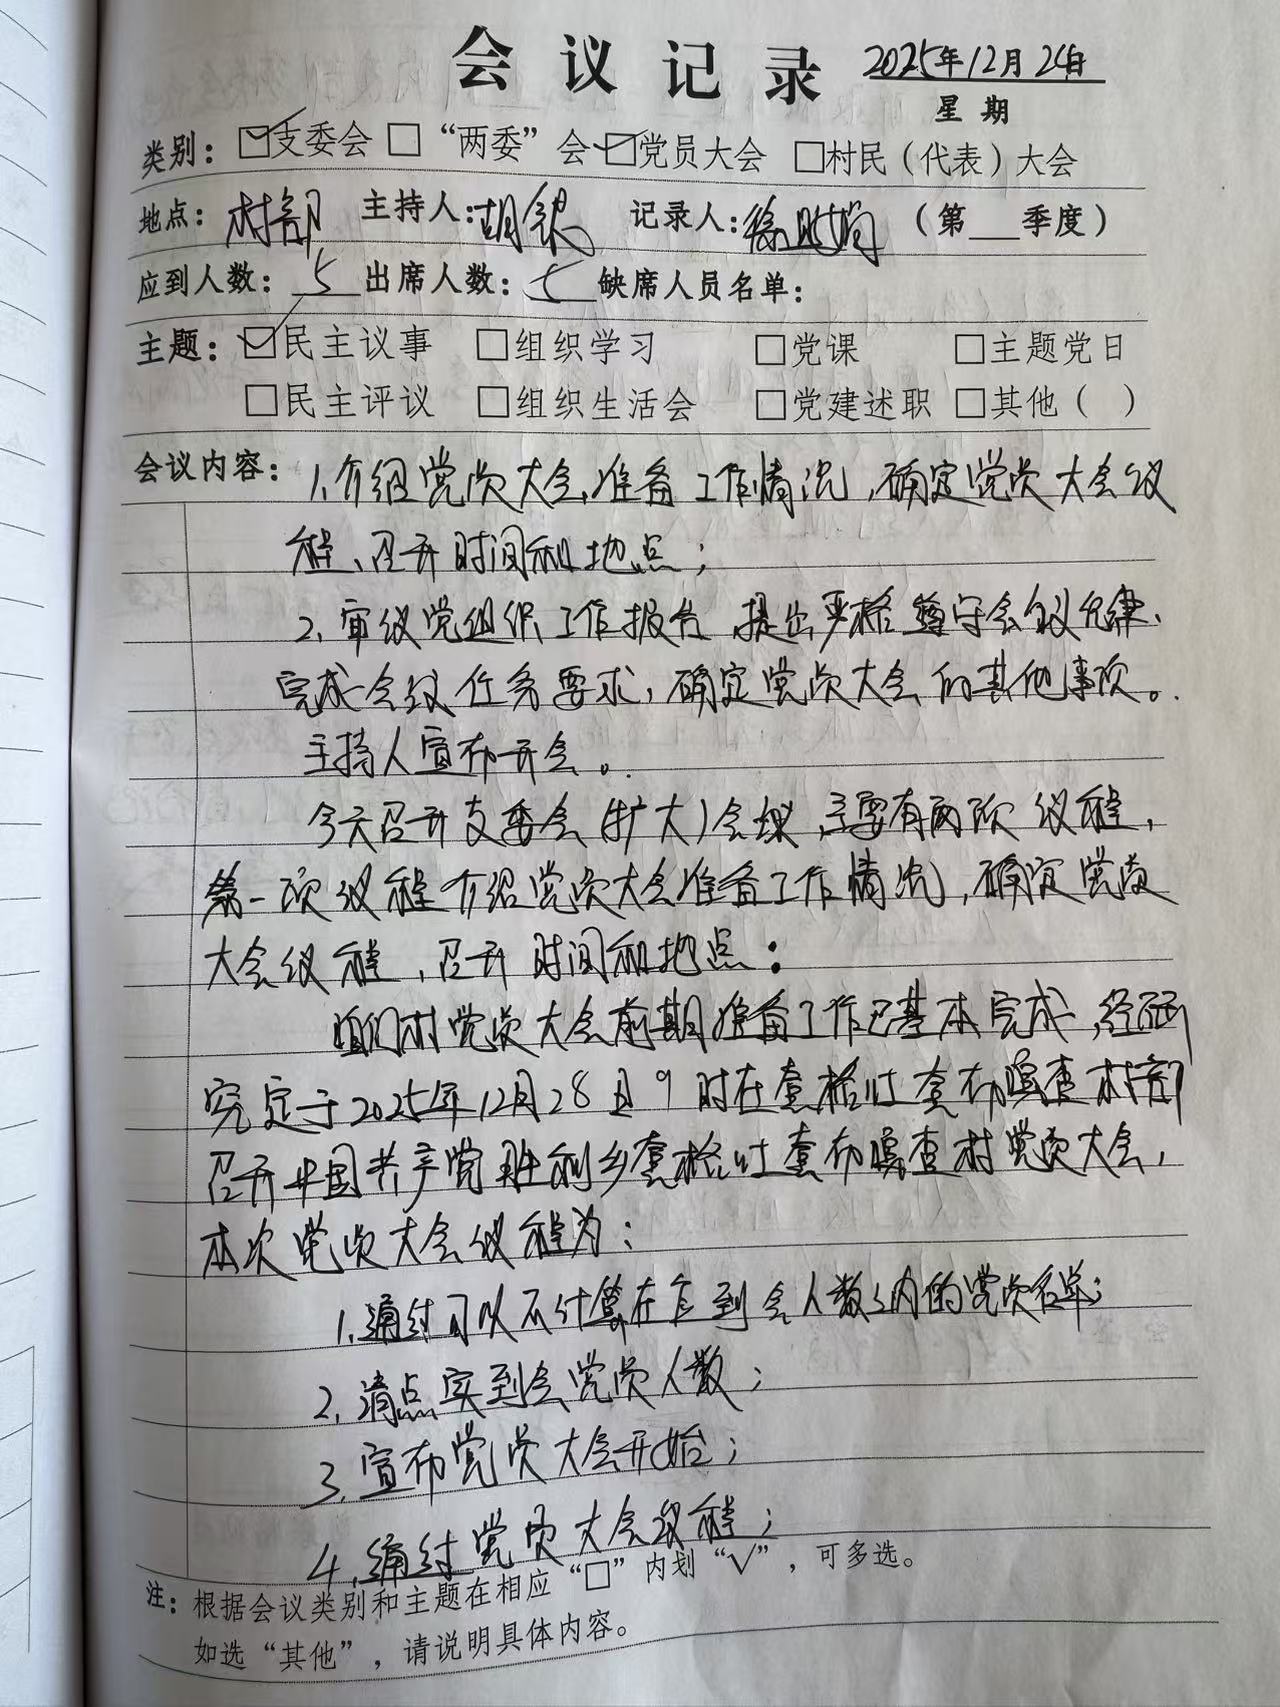 会议记录 2025年12月24日
星期
类别：☑支委会 □“两委”会 ☑党员大会 □村民（代表）大会
地点：村部 主持人：胡银 记录人：徐 （第 季度）
应到人数：5 出席人数：5 缺席人员名单：
主题：☑民主议事 □组织学习 □党课 □主题党日
□民主评议 □组织生活会 □党建述职 □其他（ ）
会议内容：1.介绍党员大会准备工作情况，确定党员大会议
程、召开时间和地点；
2.审议党组织工作报告，提出严格遵守会议纪律、
完成会议任务要求，确定党员大会的其他事项。
主持人宣布开会。
今天召开支委会（扩大）会议，主要有两项议程，
第一项议程介绍党员大会准备工作情况，确定党员
大会议程，召开时间和地点：
咱们村党员大会前期准备工作已基本完成，经研
究定于2025年12月28日9时在查格吐查布嘎查村部
召开中国共产党胜利乡查格吐查布嘎查村党员大会，
本次党员大会议程为：
1.通过可以不计算在应到会人数之内的党员名单；
2.清点实到会党员人数；
3.宣布党员大会开始；
4.通过党员大会议程；
注：根据会议类别和主题在相应“□”内划“√”，可多选。
如选“其他”，请说明具体内容。